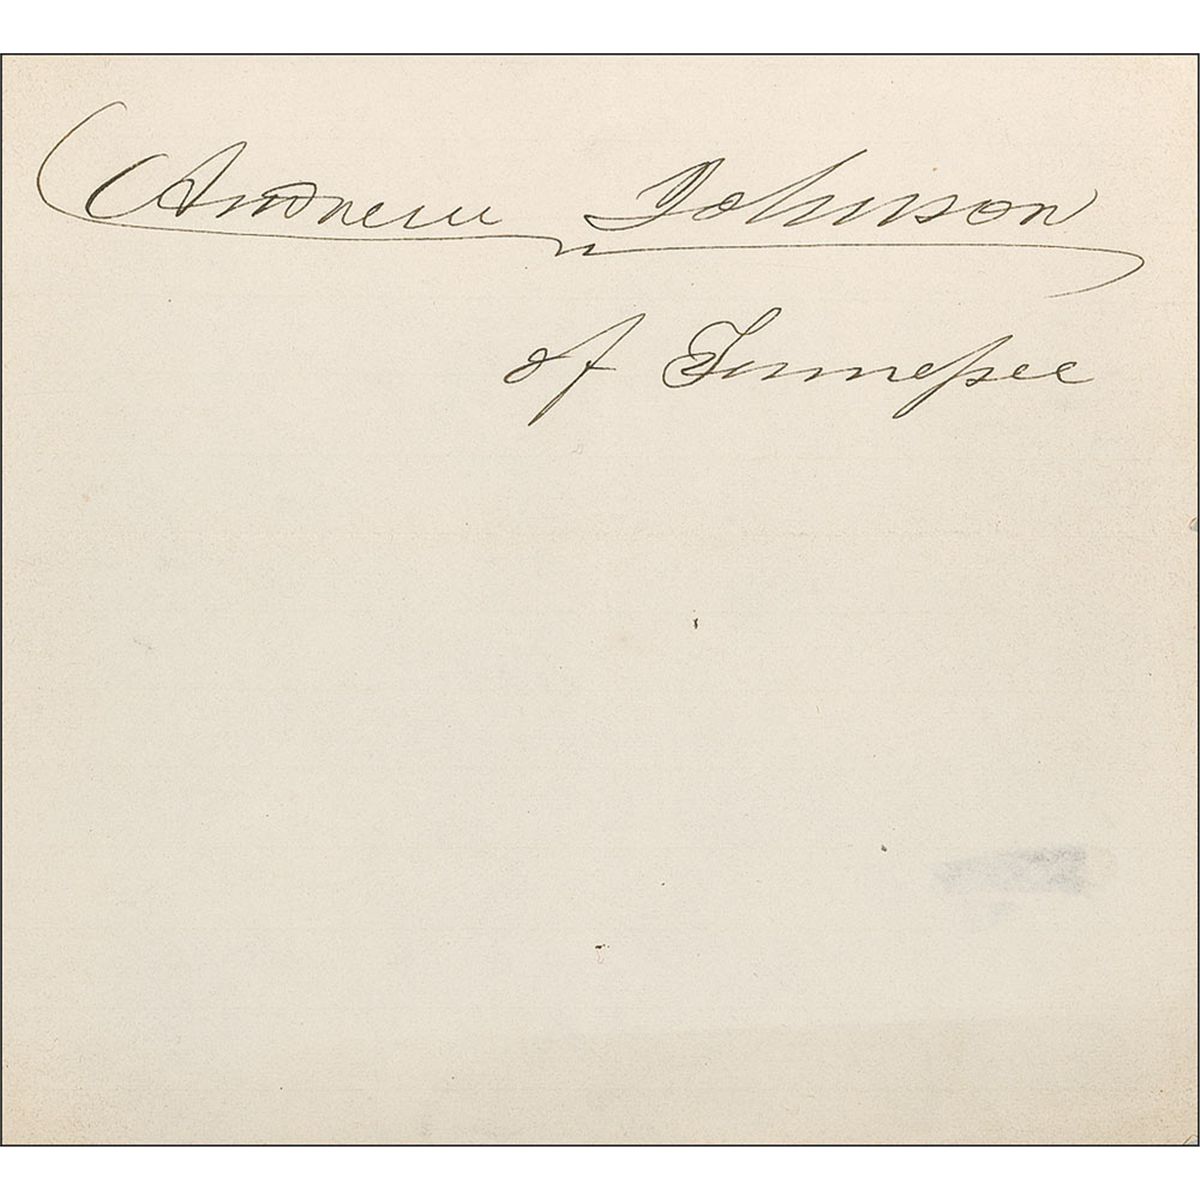 Andrew Johnson
of Tennessee